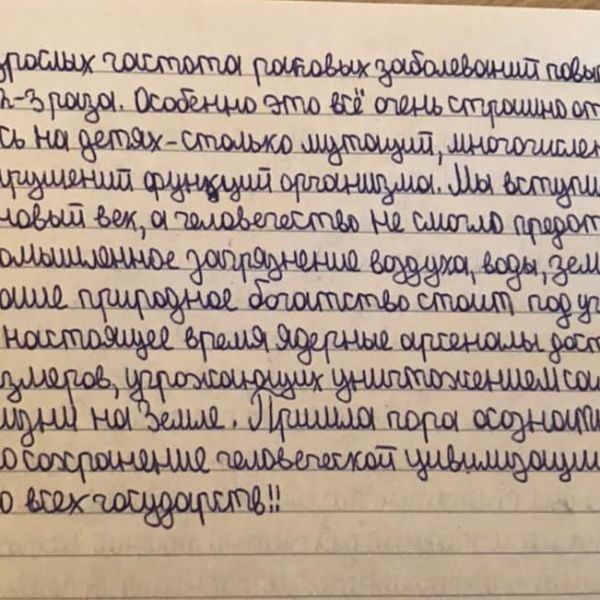 зрослых частота раковых заболеваний повы
2-3 раза. Особенно это всё очень страшно от
сь на детях-столько мутаций, многочислен
арушений функций организма. Мы вступи
новый век, а человечество не смогло предот
омышленное загрязнение воздуха, воды, зем
аше природное богатство стоит под уг
настоящее время ядерные арсеналы дост
змеров, угрожающих уничтожением са
изни на Земле. Пришла пора осознать
о сохранение человеческой цивилизации
о всех государств!!